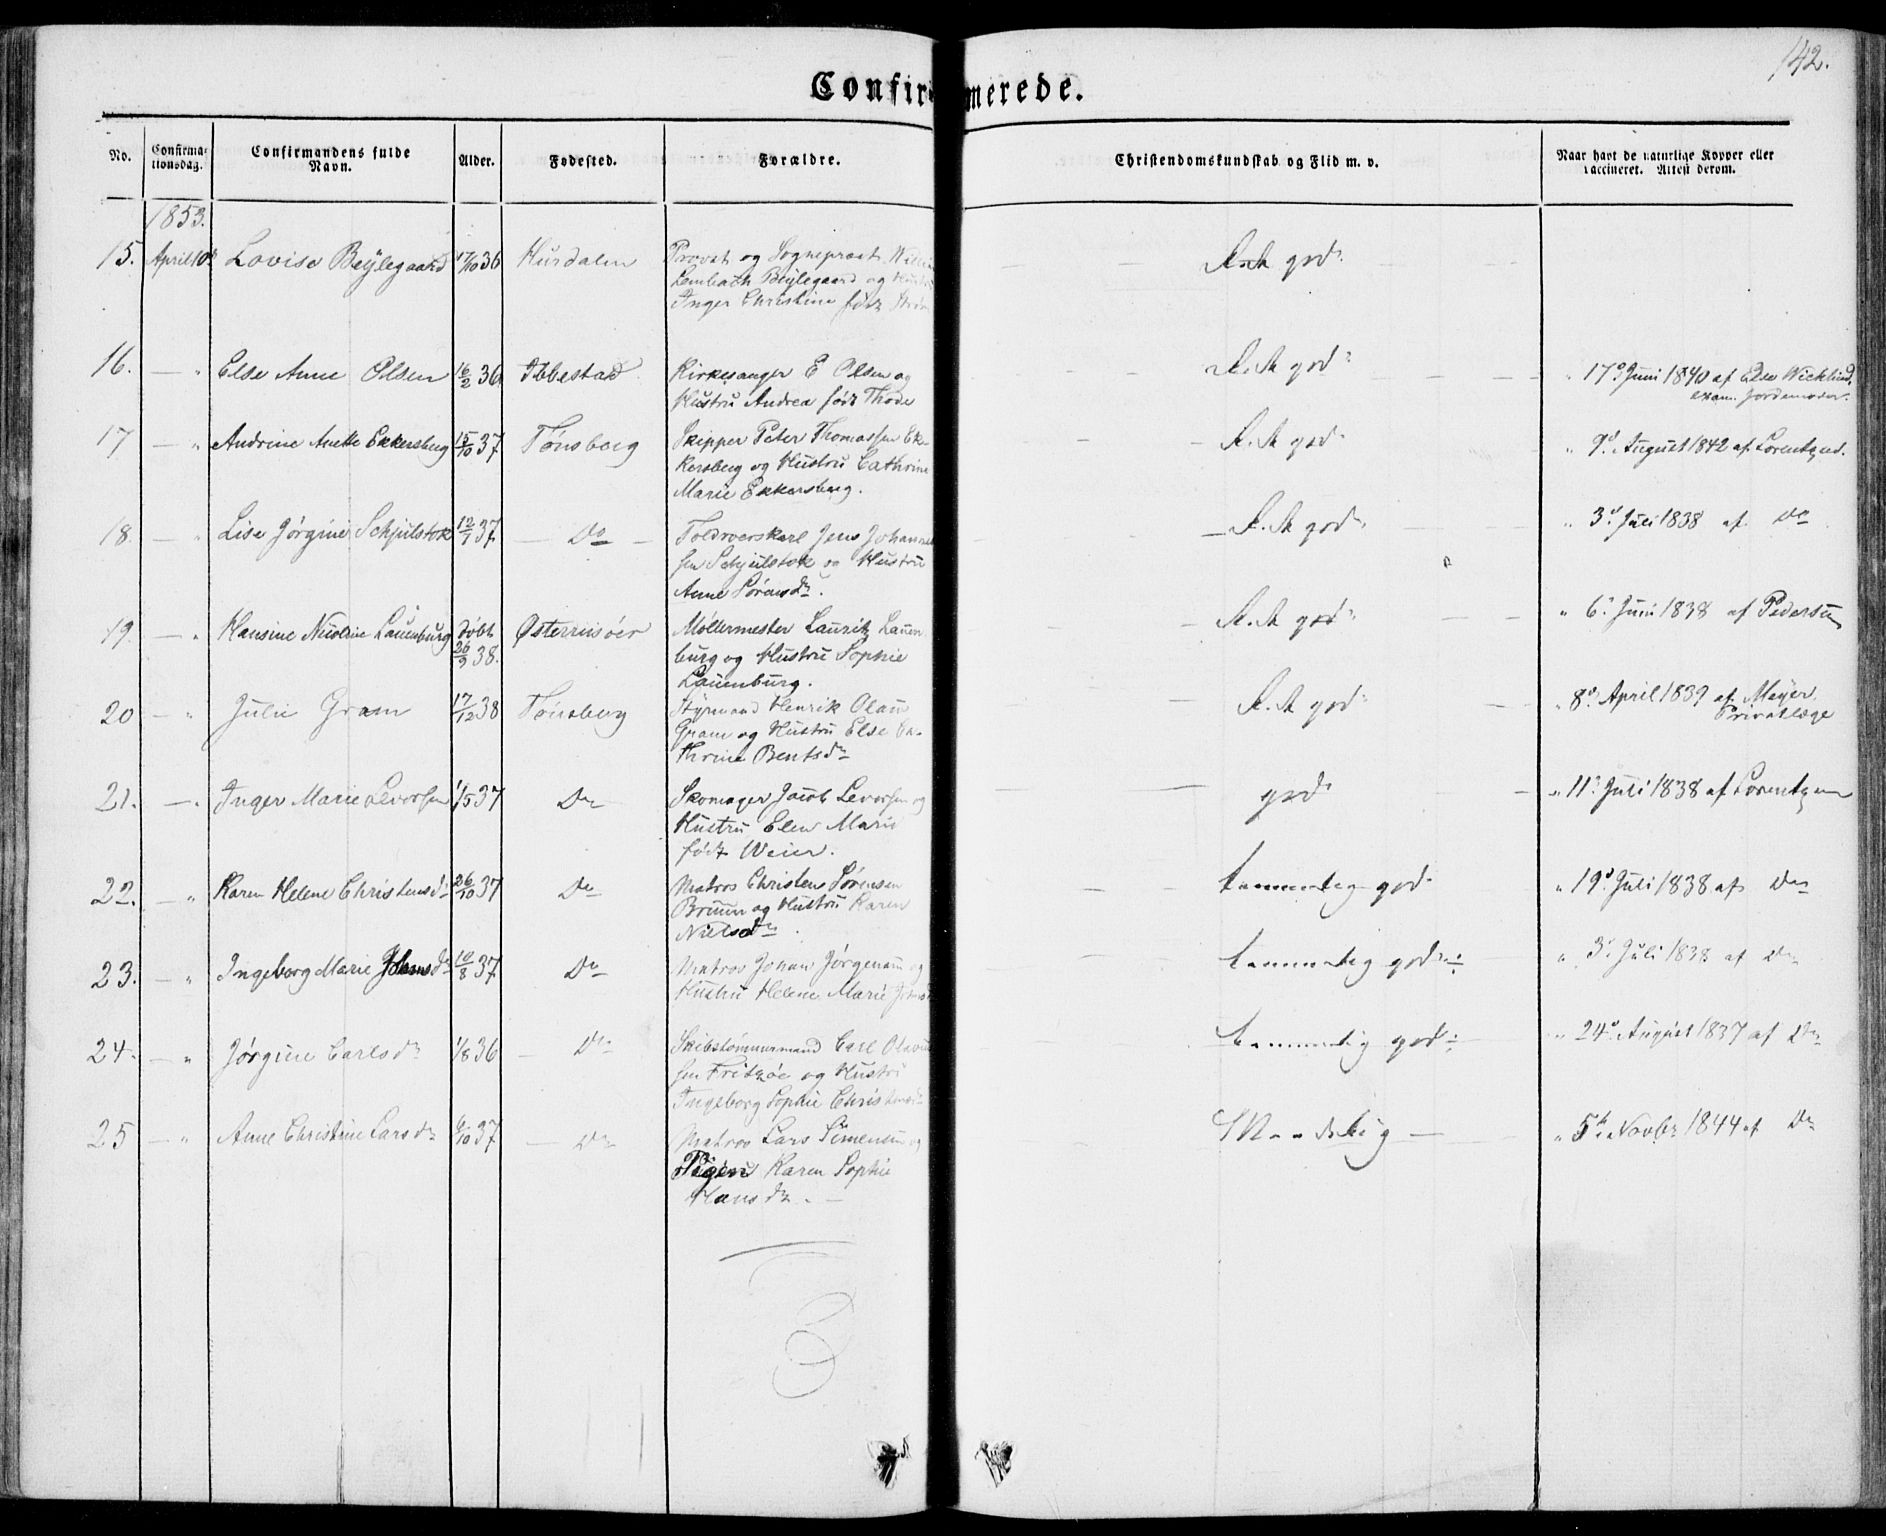 142.
Confirmerede.
No.
Confirma-
tionsdag.
Confirmandens fulde
Navn.
Alder.
Fødested.
Forældre.
Christendomskundskab og Flid m. v.
Naar havt de naturlige Kopper eller
vaccineret. Attest derom.
1853.
15. April 10de Lovise Bejlegaard 17/10 36 Hurdalen Provst og Sognepræst
Lembach Bejlegaard og Hustru
Inger Christine født Strøm
god.
16. — " Else Anne Olsen 16/2 36 Ibbestad Kirkesanger E Olsen og
Hustru Andrea født Thode
god
" 17de Juni 1840 af Else Wicklund
exam. Jordemoder.
17 — " Andrine Anette Ekkersberg 15/10 37 Tønsberg Skipper Peter Thomassen Ek-
kersberg og Hustru Cathrine
Marie Ekkersberg.
god
" 9d. August 1842 af Lorentzen.
18. — " Lise Jørgine Schjulstok 12/7 37 — Do — Toldroerskarl Jens Johannes
sen Schjulstok og Hustru
Anne Sørensdr.
god
" 3d. Juli 1838 af Do
19. — " Hansine Nicoline Lauenburg døbt
26/9 38. Østerriisøer Møllermester Lauritz Lauen
burg og Hustru Sophie
Lauenburg.
god
" 6. Juni 1838 af Pedersen
20 — " Julie Gram 17/12 38 Tønsberg Styrmand Henrik Olaus
Gram og Hustru Else Ca-
thrine Bentsdr
god
" 8de April 1839 af Meyer
Privatlæge
21. — " Inger Marie Levorsen 1/5 37 Do Skomager Jacob Levorsen og
Hustru Elen Marie
født Weier.
god
" 11. Juli 1838 af Lorentzen
22. — " Karen Helene Christensdr 26/10 37 Do Matros Christen Sørensen
Bruun og Hustru Karen
Nielsdr.
temmelig god
" 19d. Juli 1838 af Do
23. — " Ingeborg Marie Johansdr 10/8 37 Do Matros Johan Jørgensen og
Hustru Helene Marie
temmelig god ÷
" 3. Juli 1838 af Do
24. — " Jørgine Carlsdr 1/8 36 — Do Skibstømmermand Carl Olavus
sen Fritzøe og Hustru
Ingeborg Sophie Christensdr
temmelig god ÷
" 24d. August 1837 af Do
25 — " Anne Christine Larsdr 6/10 37 — Do Matros Lars Simensen og
Pigen Karen Sophie
Hansdr. —
Maadelig —
" 5te Novbr 1844 af Do